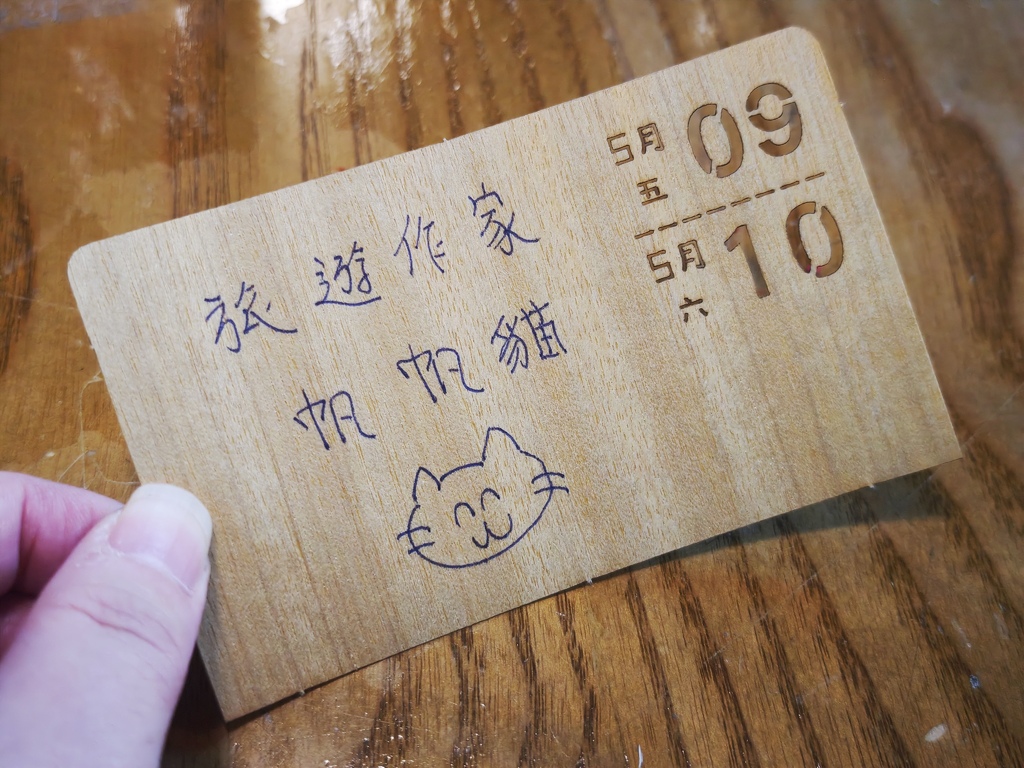 旅遊作家
帆帆貓
5月 09
五
5月 10
六